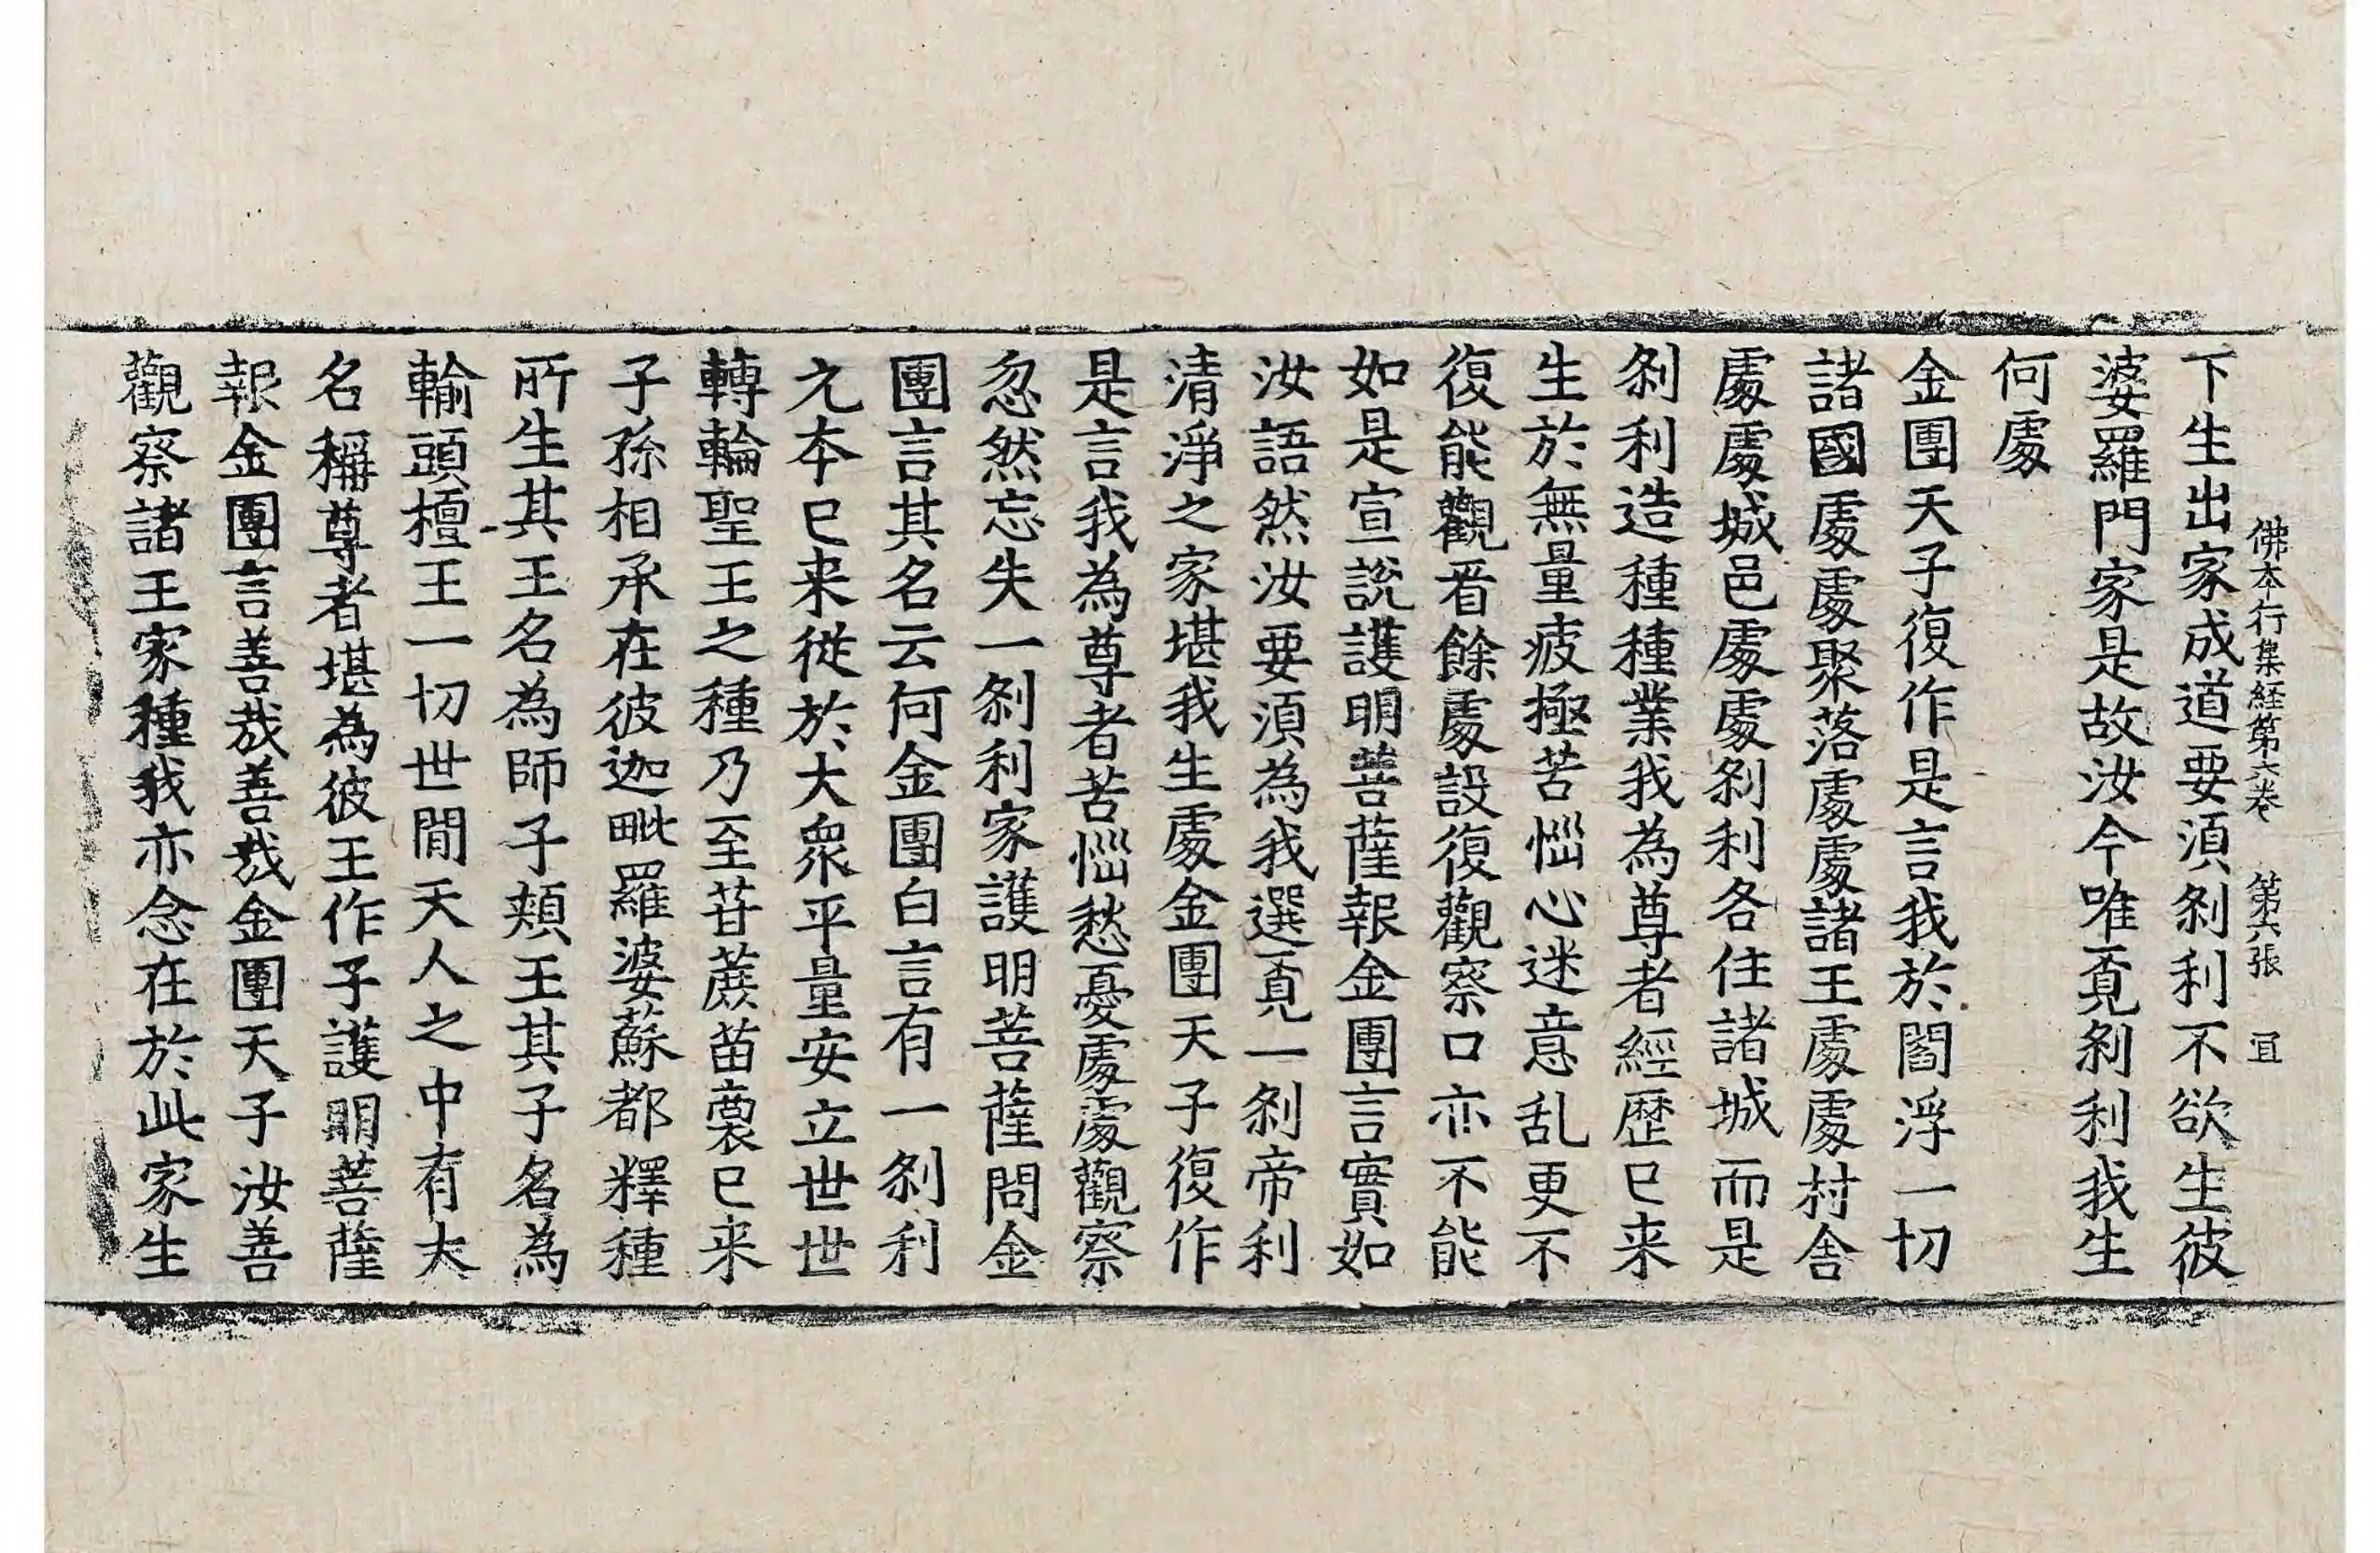 佛本行集経第六卷　第六張　宜
下生出家成道要湏刹利不欲生彼
婆羅門家是故汝今唯覔刹利我生
何處
金團天子復作是言我於閻浮一切
諸國處處聚落處處諸王處處村舎
處處城邑處處刹利各住諸城而是
刹利造種種業我為尊者經歴已来
生於無量疲極苦惱心迷意乱更不
復能觀㸔餘處設復觀察口亦不能
如是宣說護明菩薩報金團言實如
汝語然汝要湏為我選覔一刹帝利
清淨之家堪我生處金團天子復作
是言我為尊者苦惱愁憂處處觀察
忽然忘失一刹利家護明菩薩問金
團言其名云何金團白言有一刹利
元本已来從於大衆平量安立世世
轉輪聖王之種乃至苷蔗苗裔已来
子孫相承在彼迦毗羅婆蘇都釋種
所生其王名為師子頰王其子名為
輸頭檀王一切世間天人之中有大
名稱尊者堪為彼王作子護明菩薩
報金團言善哉善哉金團天子汝善
觀察諸王家種我亦念在於此家生